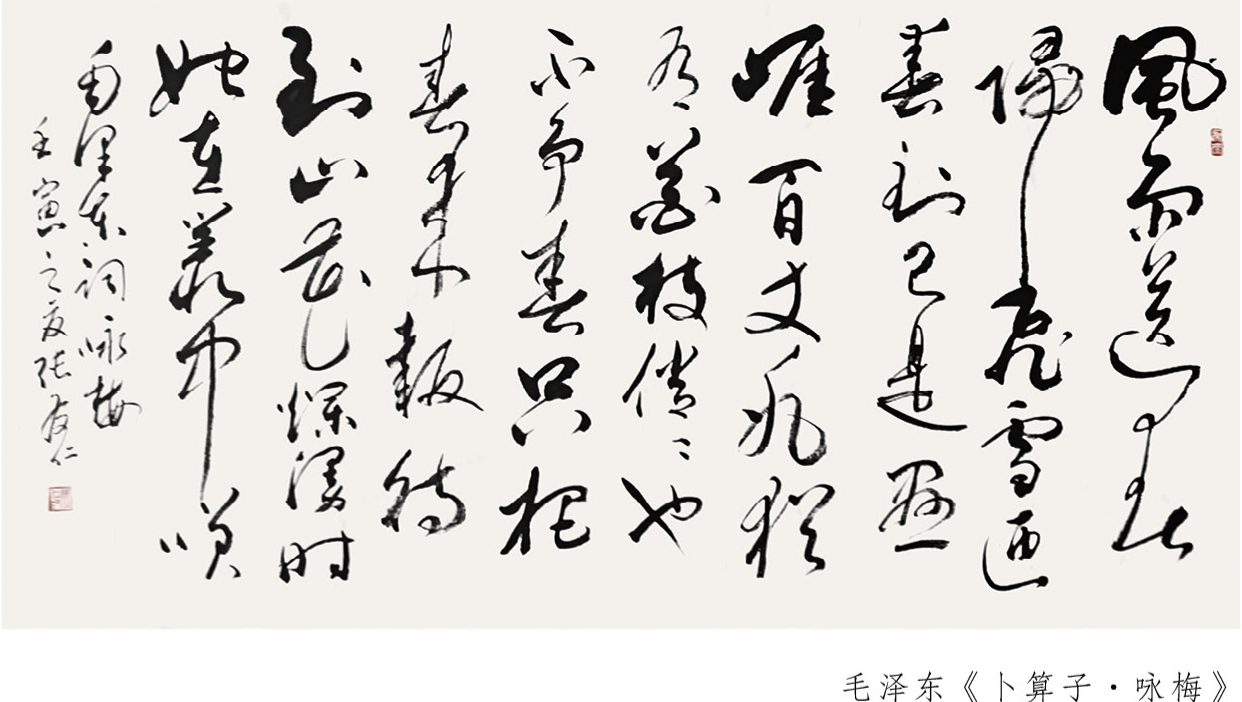 風雨送春
歸飛雪迎
春到已是懸
崖百丈冰猶
有花枝俏〻也
不争春只把
春来報待
到山花爛漫時
她在叢中笑
毛泽东词咏梅
壬寅之夏张友仁
毛泽东《卜算子·咏梅》